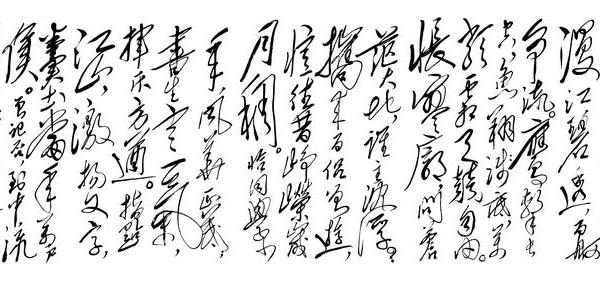 漫江碧透,百舸
争流。鹰击长
空,鱼翔浅底,万
类霜天竞自由。
怅寥廓,问苍
茫大地,谁主沉浮。
携来百侣曾游,
忆往昔峥嵘岁
月稠。恰同学少
年,风华正茂,
书生意气,
挥斥方遒。指点
江山,激扬文字,
粪土当年万户
侯。曾记否,到中流